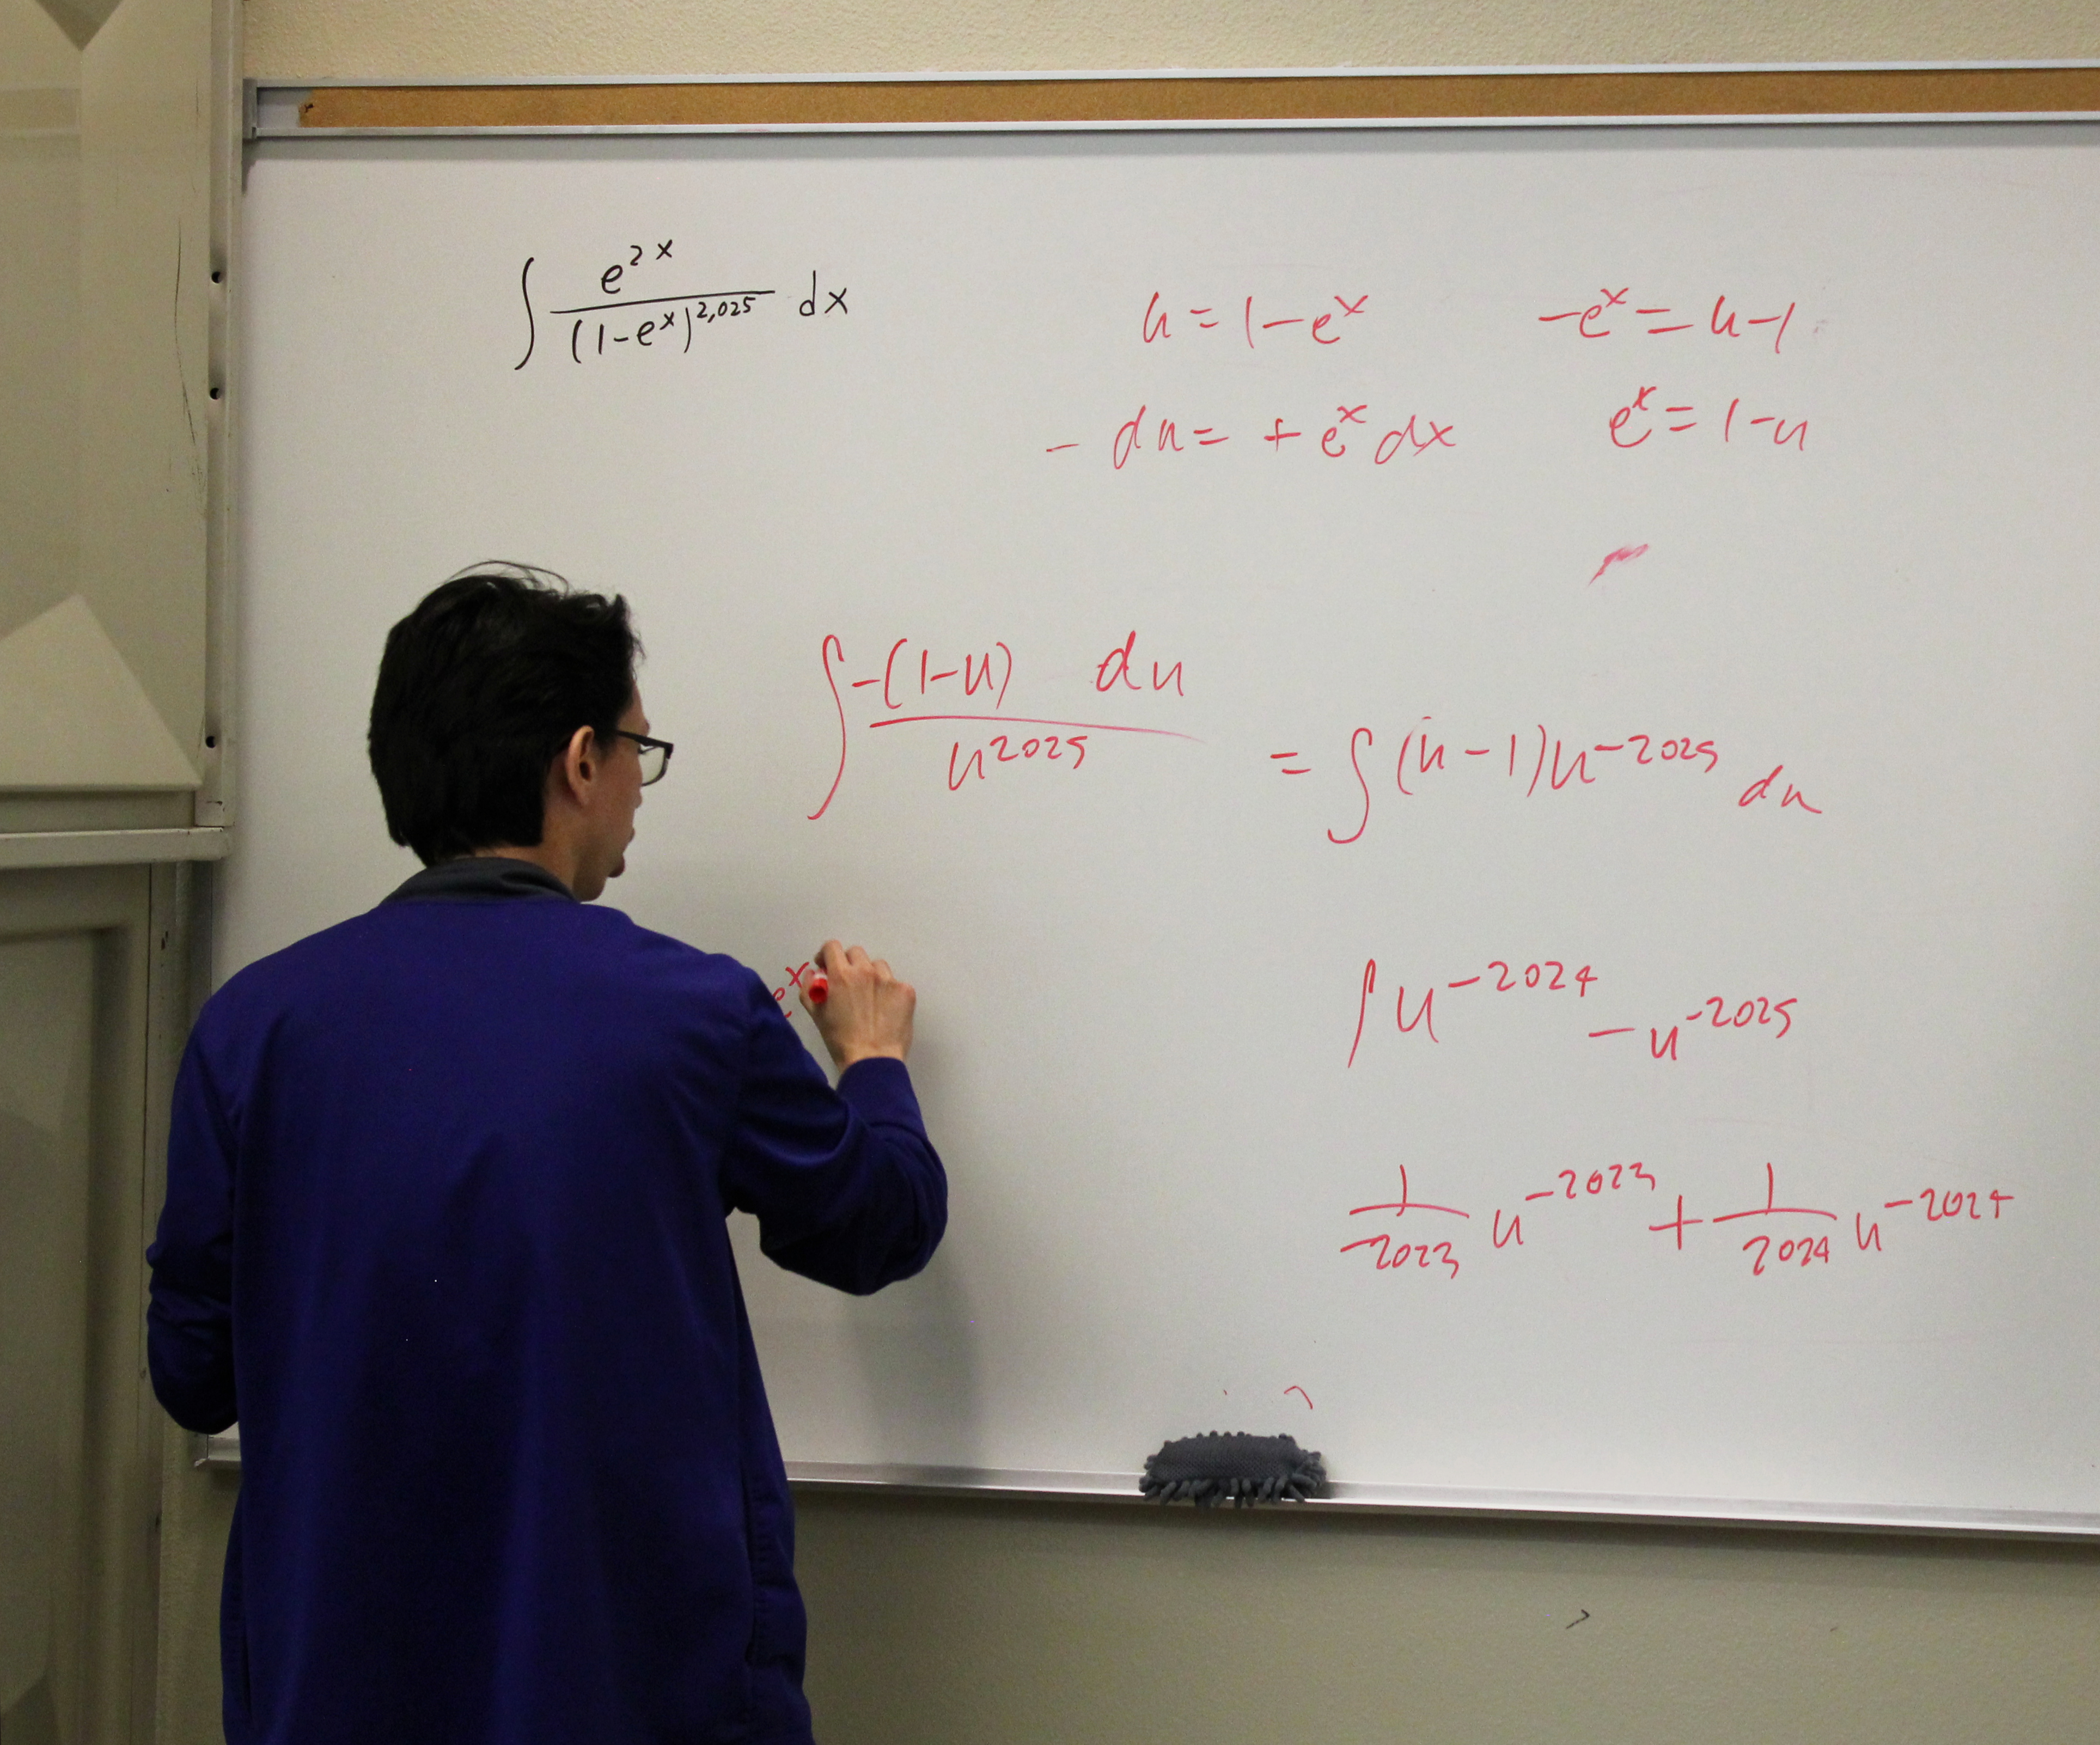 ∫ e^{2x} / (1-e^x)^{2,025} dx
u = 1-e^x
-e^x = u-1
- du = + e^x dx
e^x = 1-u
∫ -(1-u) du / u^{2025}
= ∫ (u-1)u^{-2025} du
e^x
∫ u^{-2024} - u^{-2025}
1/-2023 u^{-2023} + 1/2024 u^{-2024}